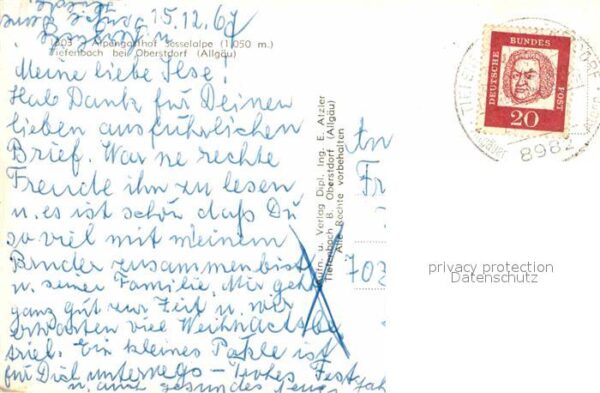 15.12.67
1303 Alpengasthof Sesselalpe (1050 m.)
Tiefenbach bei Oberstdorf (Allgäu)
Meine liebe Ilse!
Hab Dank für Deinen
lieben ausführlichen
Brief. War ne rechte
Freude ihn zu lesen
u. es ist schön daß Du
so viel mit meinem
Bruder zusammenbist
u. seiner Familie. Mir geht
ganz gut zur Zeit u. wir
erwarten viel Weihnachtsbe
trieb. Ein kleines Päkle ist
für Dich unterwegs – Frohes Fest
u. auch gesundes neues Jahr
Aufn. u. Verlag Dipl. Ing. E. Atzler
Tiefenbach B. Oberstdorf (Allgäu)
Alle Rechte vorbehalten
An
Fr
703
DEUTSCHE BUNDESPOST
20
8982
privacy protection
Datenschutz